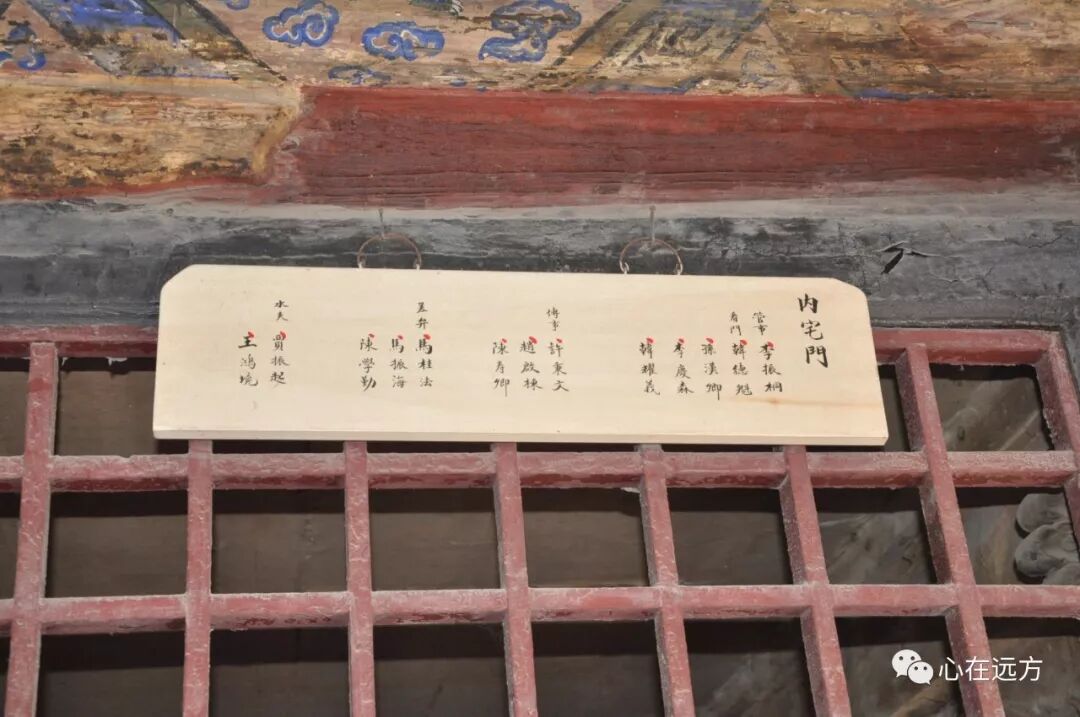 内宅門
管事 李振桐
看門 韓德魁
孫漢卿
李慶森
韓耀義
傳事 許秉文
趙啟棟
陳壽卿
差弁 馬桂法
馬振海
陳學勤
水夫 賈振起
王鴻境
心在远方